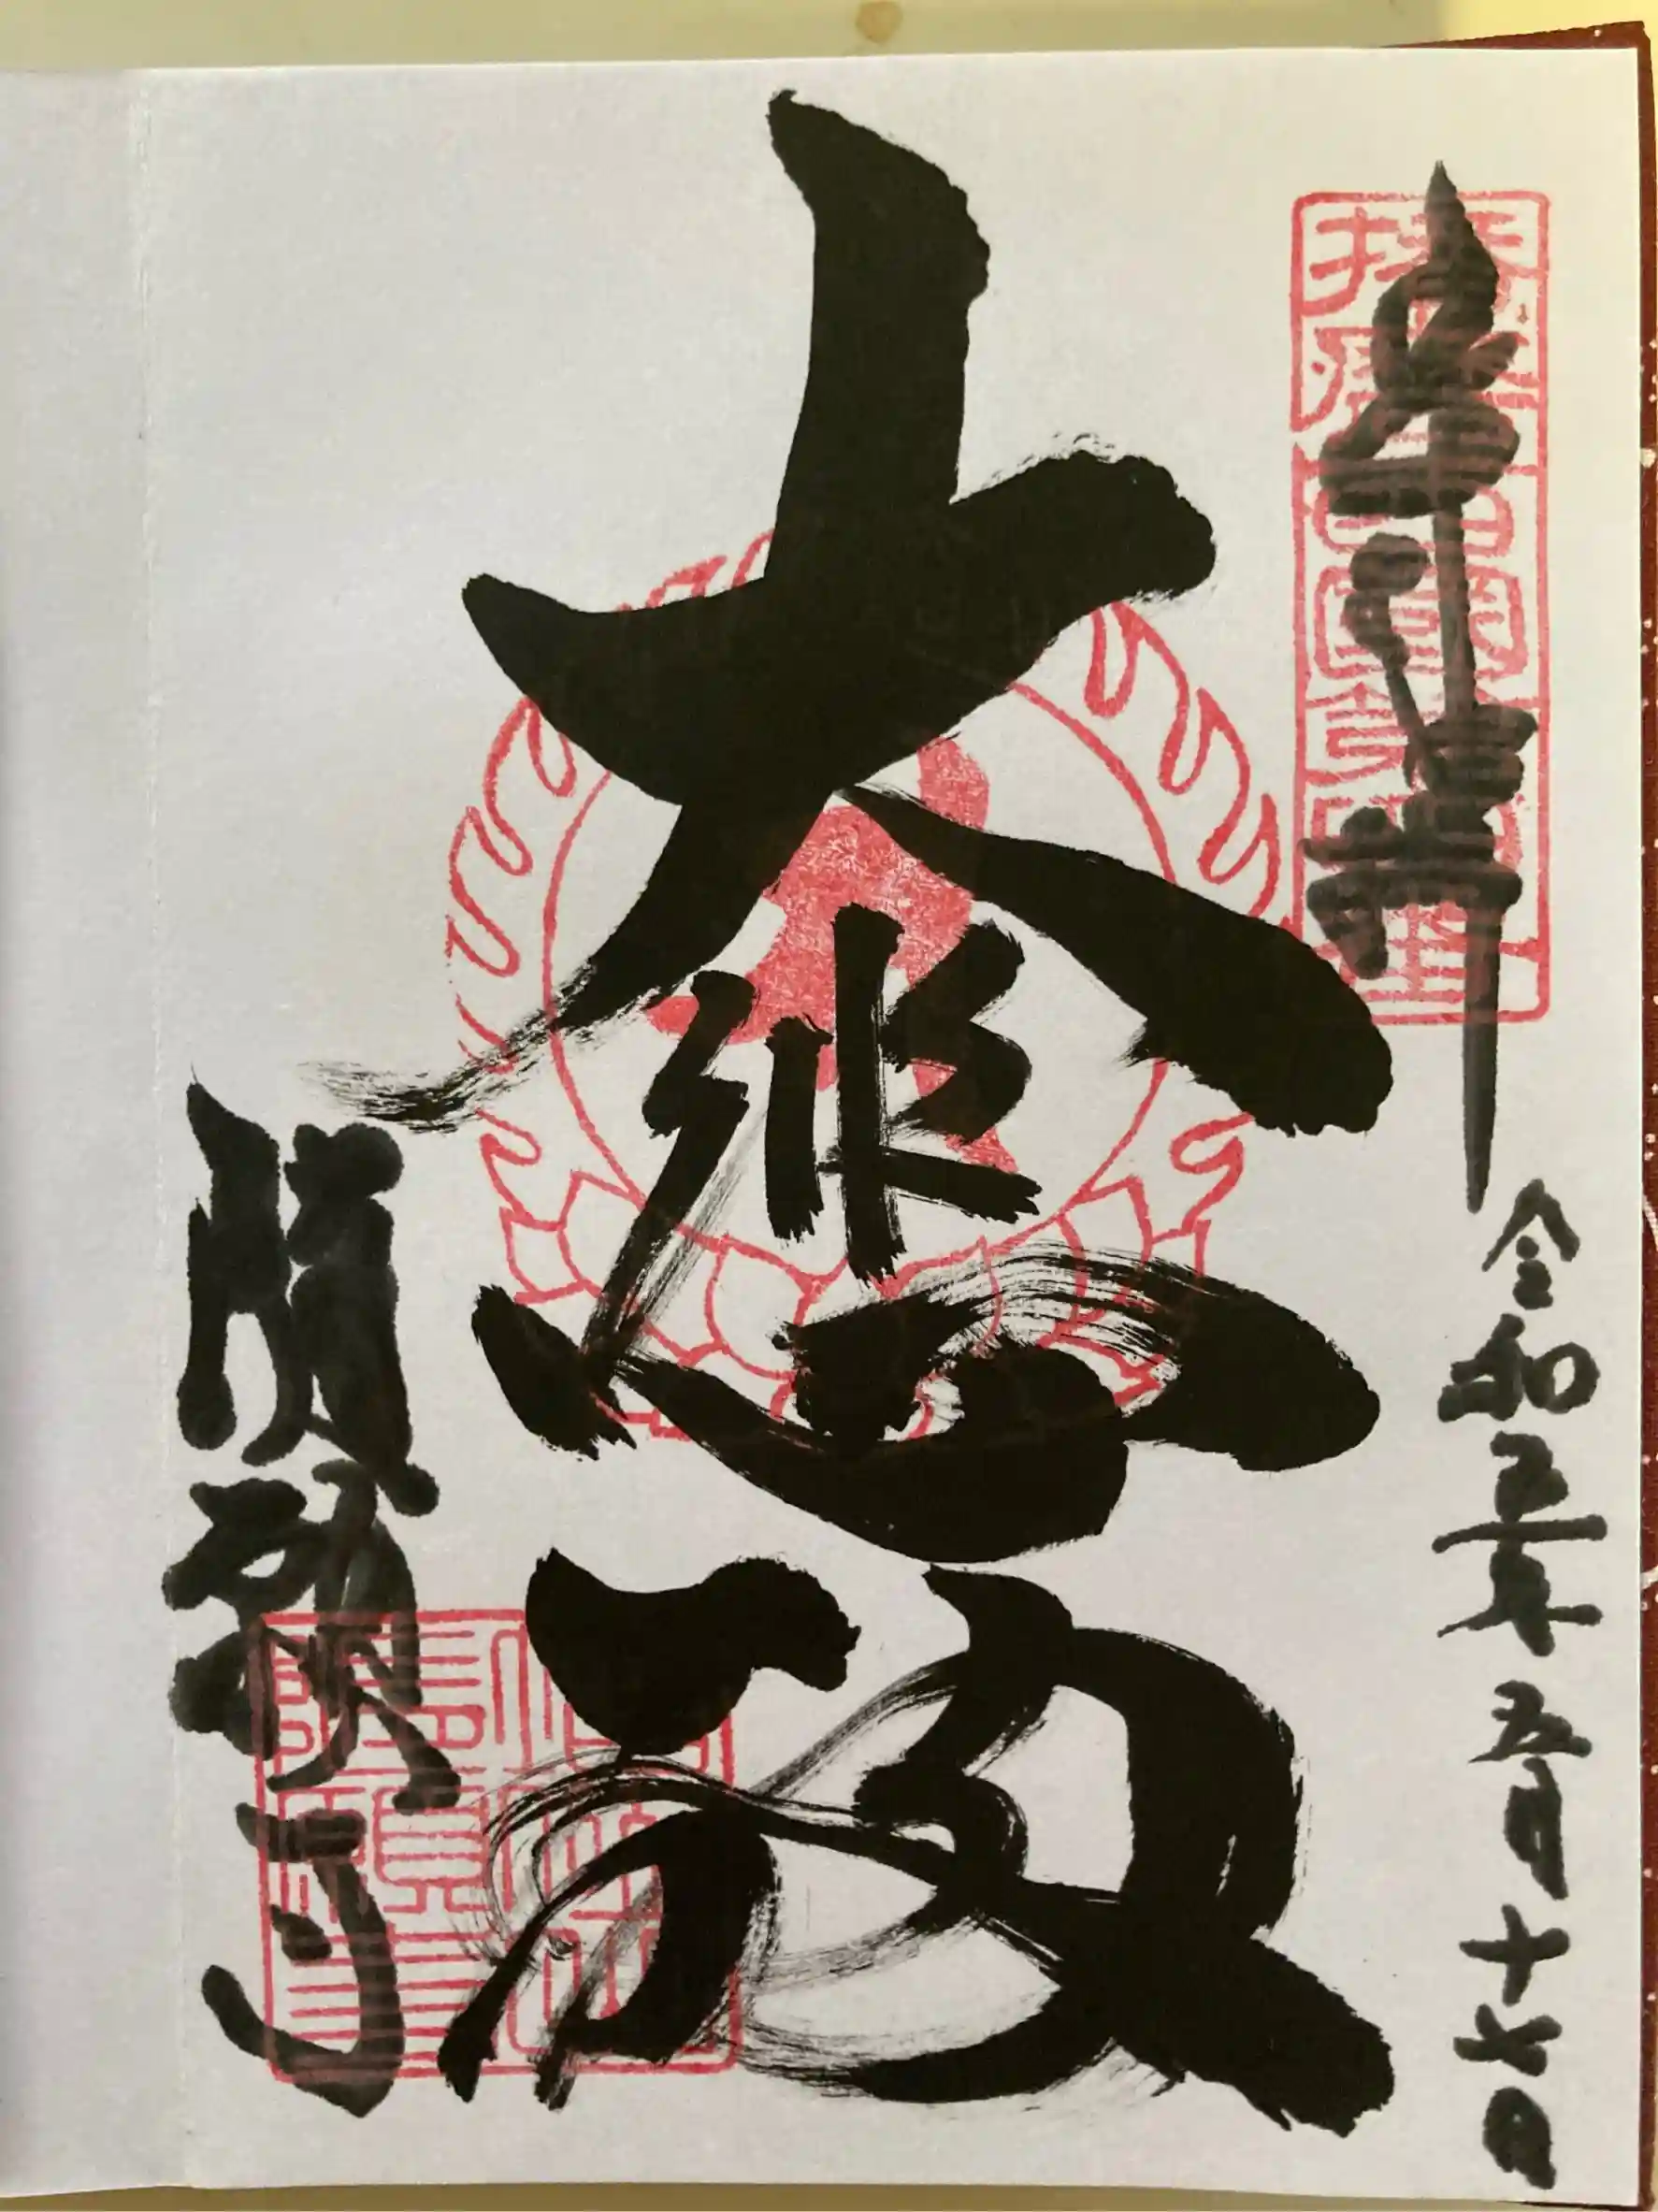 奉拝
令和五年五月十七日
大悲殿
随願寺